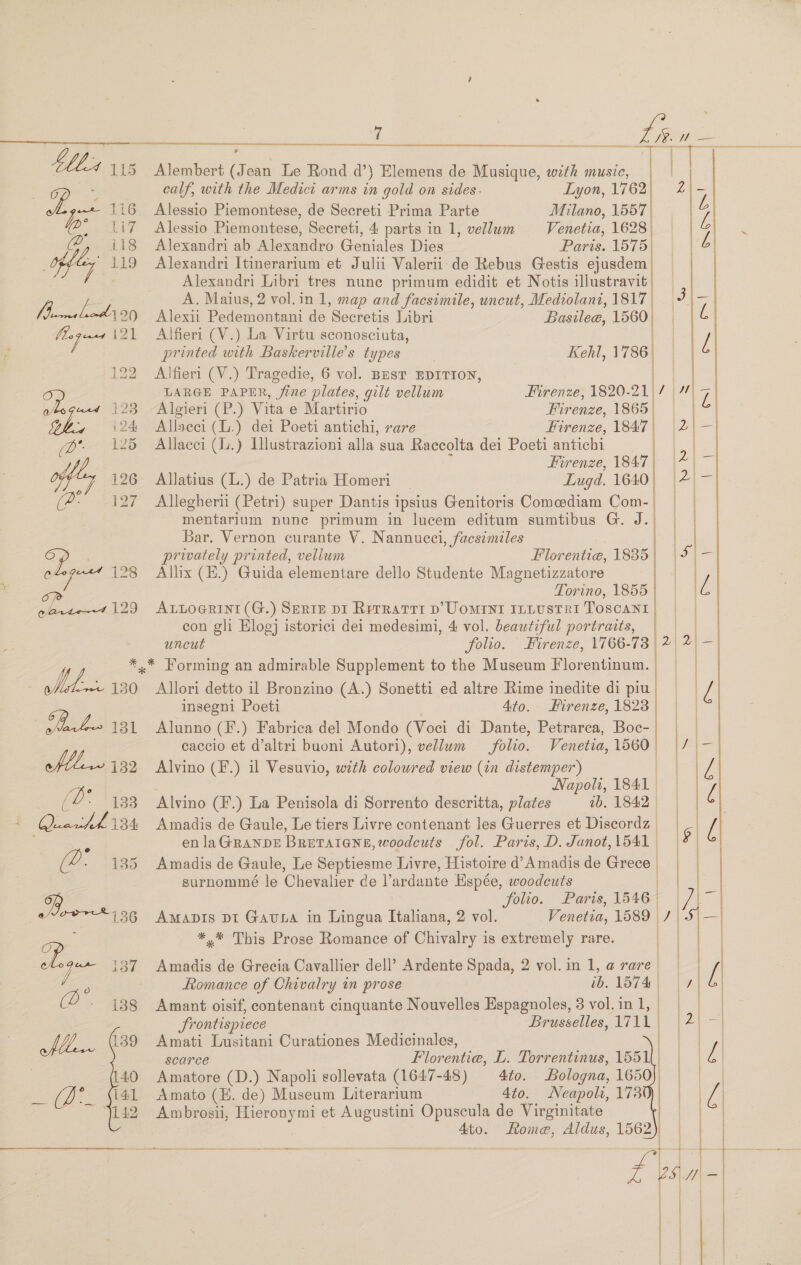 7
115 Alembert (Jean Le Rond d’) Elemens de Musique, with music,
calf, with the Medici arms in gold on sides. Lyon, 1762
116 Alessio Piemontese, de Secreti Prima Parte Milano, 1557
Do 117 Alessio Piemontese, Secreti, 4 parts in 1, vellum Venetia, 1628
Do 118 Alexandri ab Alexandro Geniales Dies Paris. 1575
119 Alexandri Itinerarium et Julii Valerii de Rebus Gestis ejusdem
Alexandri Libri tres nunc primum edidit et Notis illustravit
A. Maius, 2 vol. in 1, map and facsimile, uncut, Mediolani, 1817
120 Alexii Pedemontani de Secretis Libri Basileæ, 1560
121 Alfieri (V.) La Virtu sconosciuta,
printed with Baskerville’s types Kehl, 1786
122 Alfieri (V.) Tragedie, 6 vol. BEST EDITION,
LARGE PAPER, fine plates, gilt vellum Firenze, 1820-21
123 Algieri (P.) Vita e Martirio Firenze, 1865
124 Allacci (L.) dei Poeti antichi, rare Firenze, 1847 2 –
Do 125 Allacci (L.) Illustrazioni alla sua Raccolta dei Poeti antichi
Firenze, 1847 2 –
126 Allatius (L.) de Patria Homeri Lugd. 1640 2 –
Do 127 Allegherii (Petri) super Dantis ipsius Genitoris Comœdiam Com-
mentarium nunc primum in lucem editum sumtibus G. J.
Bar. Vernon curante V. Nannucci, facsimiles
privately printed, vellum Florentiæ, 1835 5 –
128 Allix (E.) Guida elementare dello Studente Magnetizzatore
Torino, 1855
129 ALLOGRINI (G.) SERIE DI RITRATTI D’UOMINI ILLUSTRI TOSCANI
con gli Elogj istorici dei medesimi, 4 vol. beautiful portraits,
uncut folio. Firenze, 1766-73 2 2 –
*** Forming an admirable Supplement to the Museum Florentinum.
130 Allori detto il Bronzino (A.) Sonetti ed altre Rime inedite di piu
insegni Poeti 4to. Firenze, 1823
131 Alunno (F.) Fabrica del Mondo (Voci di Dante, Petrarca, Boc-
caccio et d’altri buoni Autori), vellum folio. Venetia, 1560
132 Alvino (F.) il Vesuvio, with coloured view (in distemper)
Napoli, 1841
Do 133 Alvino (F.) La Penisola di Sorrento descritta, plates ib. 1842
134 Amadis de Gaule, Le tiers Livre contenant les Guerres et Discordz
en la GRANDE BRETAIGNE, woodcuts fol. Paris, D. Janot, 1541
Do 135 Amadis de Gaule, Le Septiesme Livre, Histoire d’Amadis de Grece
surnommé le Chevalier de l’ardante Espée, woodcuts
folio. Paris, 1546
136 AMADIS DI GAULA in Lingua Italiana, 2 vol. Venetia, 1589
*** This Prose Romance of Chivalry is extremely rare.
137 Amadis de Grecia Cavallier dell’ Ardente Spada, 2 vol. in 1, a rare
Romance of Chivalry in prose ib. 1574
Do 138 Amant oisif, contenant cinquante Nouvelles Espagnoles, 3 vol. in 1,
frontispiece Brusselles, 1711 2 –
139 Amati Lusitani Curationes Medicinales,
scarce Florentiæ, L. Torrentinus, 1551
140 Amatore (D.) Napoli sollevata (1647-48) 4to. Bologna, 1650
Do 141 Amato (E. de) Museum Literarium 4to. Neapoli, 1730
142 Ambrosii, Hieronymi et Augustini Opuscula de Virginitate
4to. Romæ, Aldus, 1562
£ 25 11 –